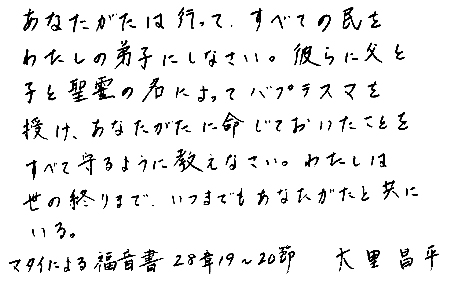 あなたがたは行って、すべての民を
わたしの弟子にしなさい。彼らに父と
子と聖霊の名によってバプテスマを
授け、あなたがたに命じておいたことを
すべて守るように教えなさい。わたしは
世の終りまで、いつまでもあなたがたと共に
いる。
マタイによる福音書 28章19～20節 大里昌平